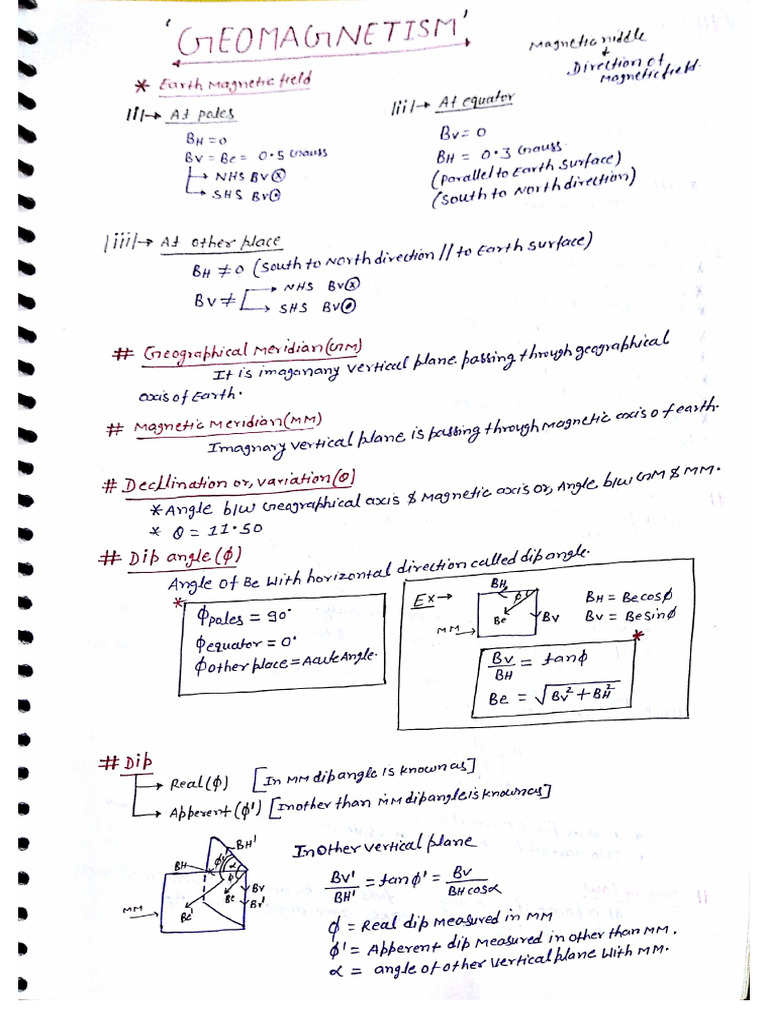 'GEOMAGNETISM'
Magnetic middle
↓
Direction of
magnetic field.
* Earth Magnetic field
|i|→ At poles
BH = 0
Bv = Be = 0.5 Gauss
→ NHS Bv⊗
→ SHS Bv⊙
|ii|→ At equator
Bv = 0
BH = 0.3 Gauss
(Parallel to Earth Surface)
(South to North direction)
|iii|→ At other place
BH ≠ 0 (South to North direction // to Earth surface)
Bv ≠ → NHS Bv⊗
→ SHS Bv⊙
# Geographical Meridian(GM)
It is imaganary vertical plane passing through geographical
axis of Earth.
# Magnetic Meridian(MM)
Imagnary vertical plane is passing through Magnetic axis of earth.
# Decllination or, variation(θ)
* Angle b/w Geographical axis & Magnetic axis or, Angle b/w GM & MM.
* θ = 11.50
# Dip angle(φ)
Angle of Be with horizontal direction called dip angle.
*
φpoles = 90°
φequator = 0°
φother place = Acute Angle.
Ex→
BH
φ
Be
Bv
MM
BH = Be cosφ
Bv = Be sinφ
*
Bv/BH = tanφ
Be = √Bv² + BH²
# Dip
→ Real(φ) [In MM dip angle is known as]
→ Apperent(φ') [In other than MM dip angle is known as]
BH'
BH
φ'
α
φ
Be
Bv
Bv'
Be'
MM
In Other vertical plane
Bv'/BH' = tanφ' = Bv/BH cosα
φ = Real dip measured in MM
φ' = Apperent dip measured in other than MM.
α = angle of other vertical plane with MM.